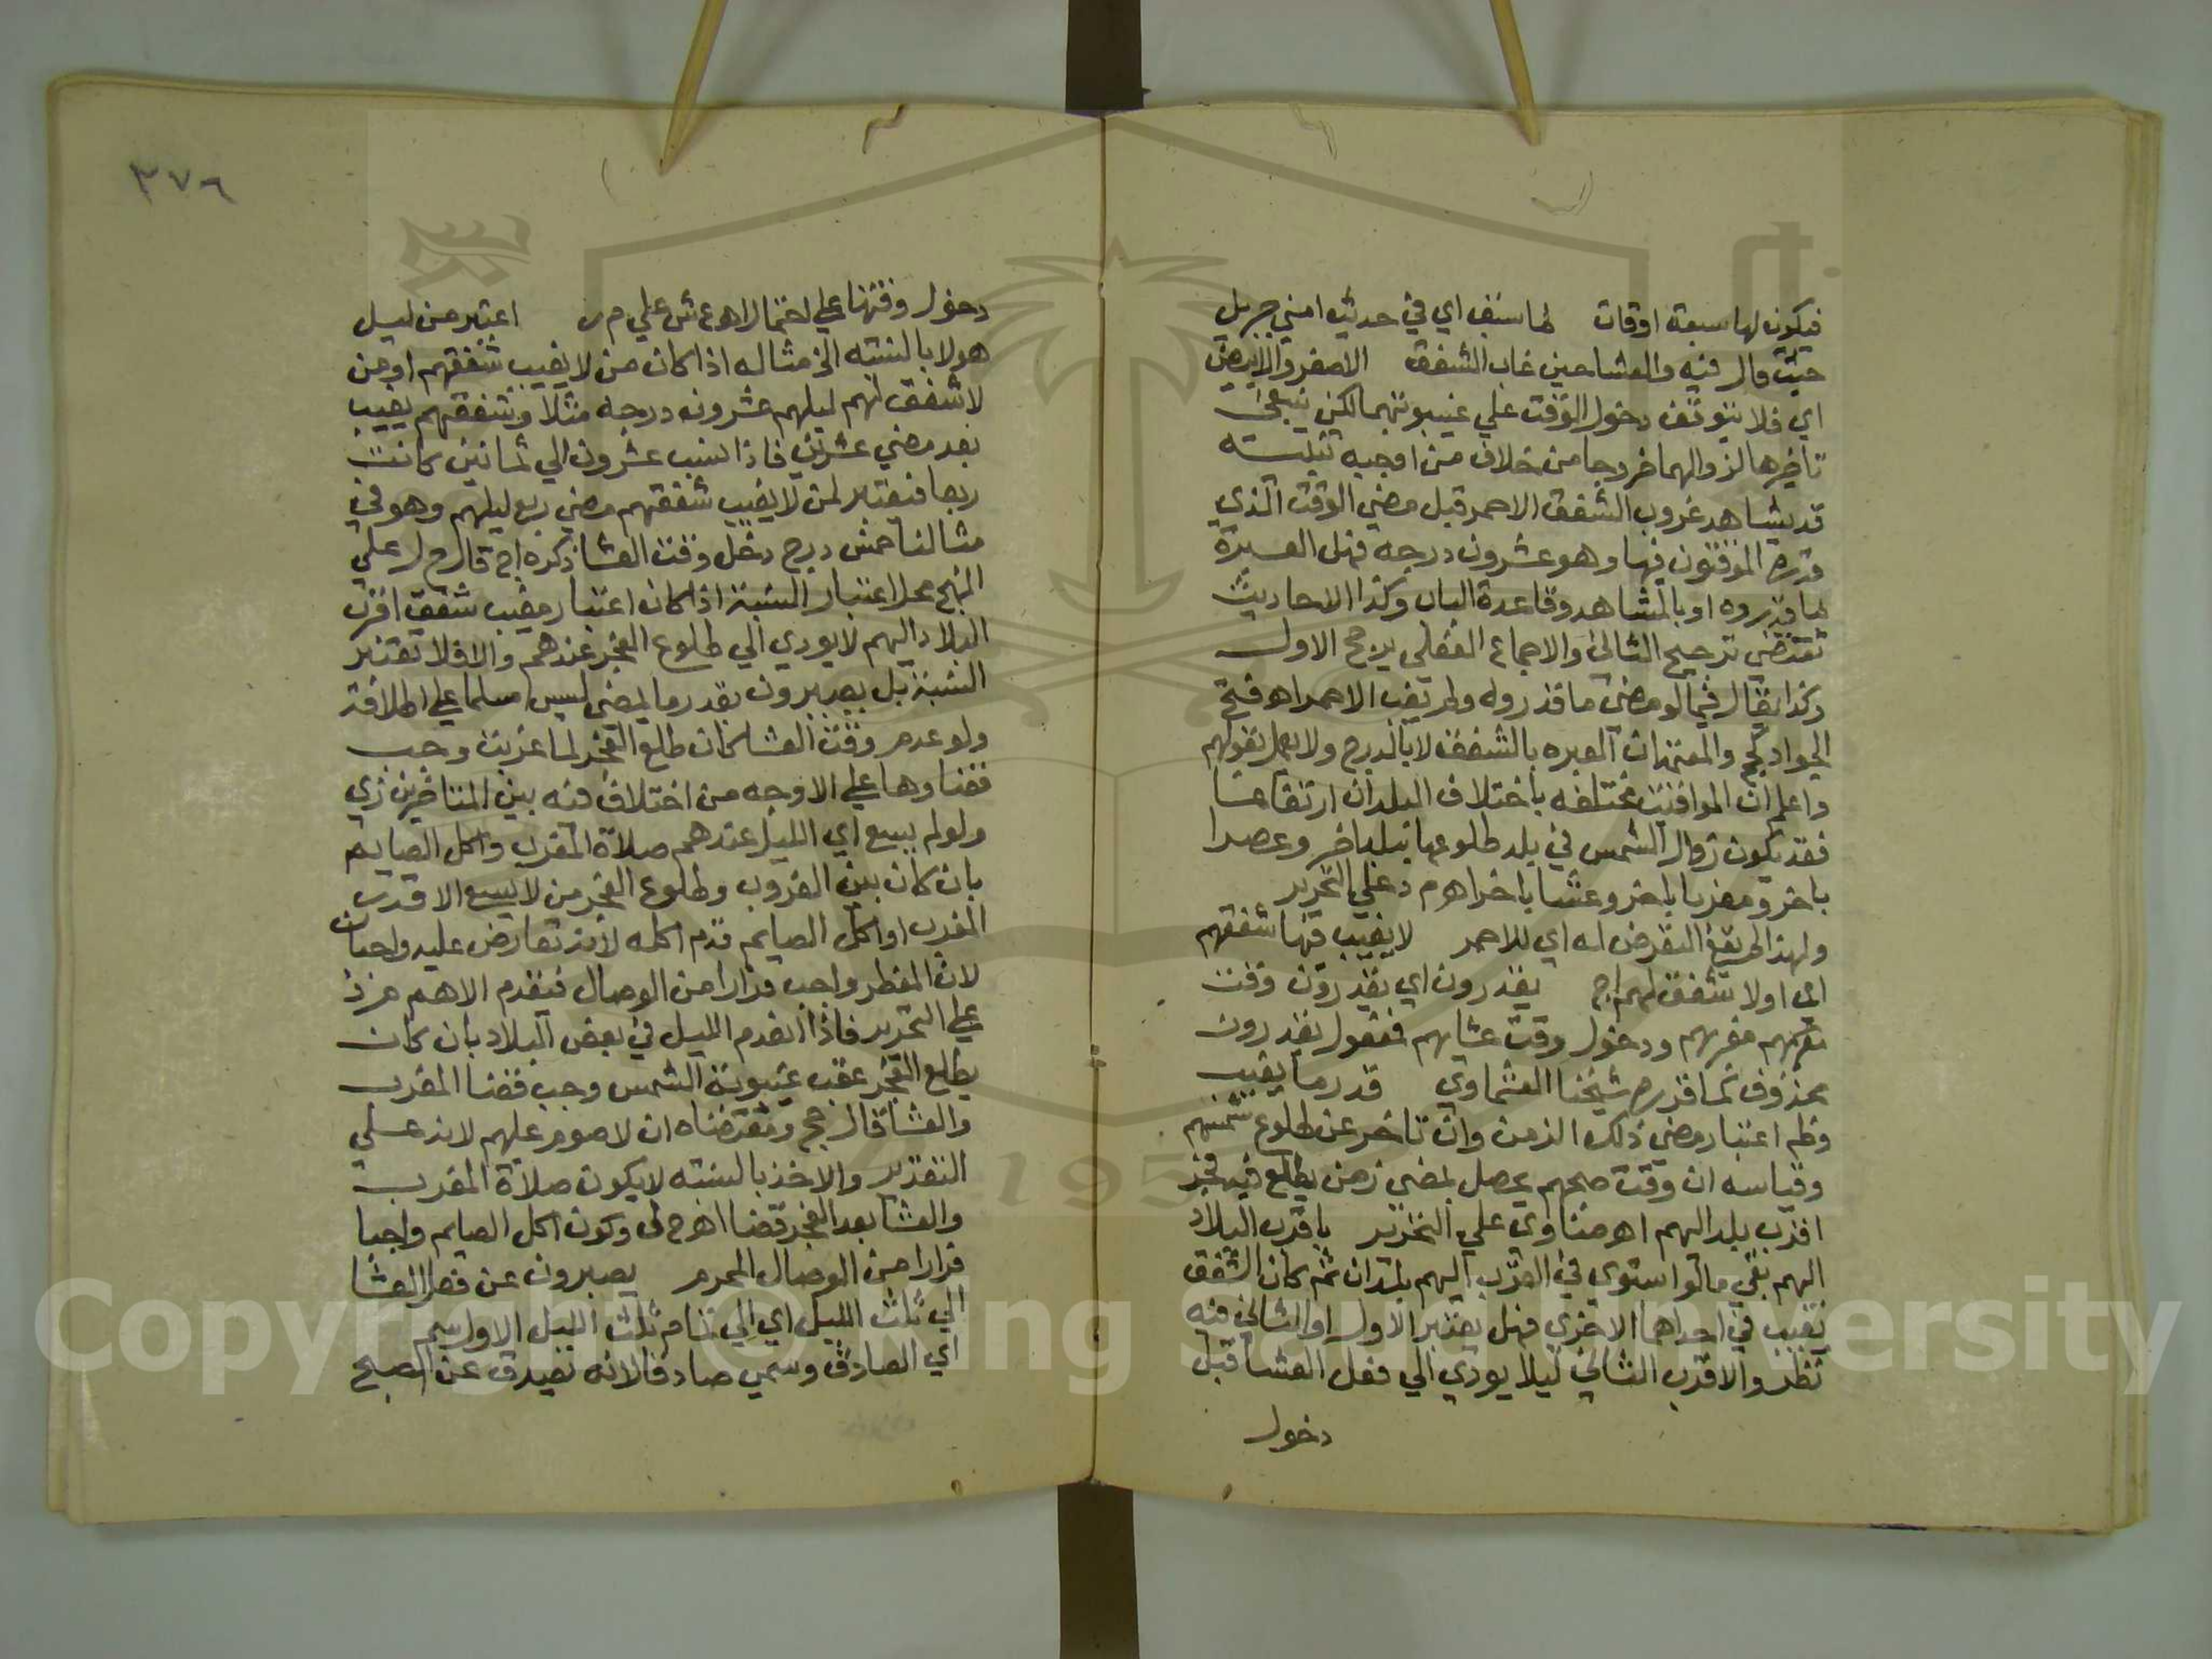 فيكون لها سبعة اوقات لما سبق اي في حديث امني جبريل
حيث قال فيه والعشا حين غاب الشفق الاصفر والابيض
اي فلا يتوقف دخول الوقت علي غيبوبتهما لكن ينبغي
تاخيرها لزوالهما خروجا من خلاف من اوجبه تنبيه
قد يشاهد غروب الشفق الاحمر قبل مضي الوقت الذي
قدره الموقتون فيها وهو عشرون درجه فهل العبرة
بما قدروه او بالمشاهد وقاعدة الباب وكذا الاحاديث
تقتضي ترجيح الثاني والاجماع الفعلي يرجح الاول
وكذا يقال فيما لو مضي ما قدروه ولم يغب الاحمر اهو فتح
الجواد لحج والمعتمد ان العبره بالشفق لا بالدرج ولا يعمل بقولهم
واعلم ان المواقيت مختلفه باختلاف البلدان ارتفاعا
فقد يكون زوال الشمس في بلد طلوعها ببلد اخر وعصرا
باخر ومغربا باخر وعشا باخر اهو م د علي التحرير
ولهذا لم يقع التعرض له اي للاحمر لا يغيب فيها شفقهم
اي اولا شفق لهم اج يقدرون اي يقدرون وقت
مغربهم ودخول وقت عشايهم فمفعول يقدرون
محذوف كما قدره شيخنا العشماوي قدر ما يغيب
وظم اعتبار مضي ذلك الزمن وان تاخر عن طلوع شمسهم
وقياسه ان وقت صبحهم يحصل بمضي زمن يطلع فيه فجر
اقرب بلد اليهم اهو مناوي علي التحرير باقرب البلاد
اليهم بقي ما لو استوي في القرب اليهم بلدان ثم كان الشفق
يغيب في احداهما الاخري فهل يعتبر الاول او الثاني فيه
نظر والاقرب الثاني ليلا يودي الي فعل العشا قبل
دخول
٣٧٦
دخول وقتها علي احتمال اهو ع ش علي م ر اعتبر من ليل
هولا بالنسبه الخ مثاله اذا كان من لا يغيب شفقهم او من
لا شفق لهم ليلهم عشرون درجه مثلا وشفقهم يغيب
بعد مضي عشرين فاذا نسب عشرون الي ثمانين كانت
ربعا فيعتبر لمن لا يغيب شفقهم مضي ربع ليلهم وهو في
مثالنا خمس درج دخل وقت العشا ذكره اج قال ح ل علي
المنهج محل اعتبار النسبة اذا كان اعتبار مغيب شفق اقرب
البلاد اليهم لا يودي الي طلوع الفجر عندهم والا فلا تعتبر
النسبة بل يصبرون بقدر ما يمضي ليس مسلما علي اطلاقه
ولو عدم وقت العشا كان طلع الفجر لما غربت وجب
قضاوها علي الاوجه من اختلاف فيه بين المتاخرين زي
ولو لم يسع اي الليل عندهم صلاة المغرب واكل الصايم
بان كان بين الغروب وطلوع الفجر من لا يسع الا قدر
المغرب او اكل الصايم قدم اكله لانه تعارض عليه واجبان
لان الفطر واجب فرارا من الوصال فيقدم الاهم
علي التحرير فاذا انعدم الليل في بعض البلاد بان كان
يطلع الفجر عقب غيبوبة الشمس وجب قضا المغرب
والعشا قال حج ومقتضاه ان لا صوم عليهم لانه علي
التقدير والاخذ بالنسبه لا يكون صلاة المغرب
والعشا بعد الفجر قضا وكون اكل الصايم واجبا
فرارا من الوصال المحرم يصبرون عن فعل العشا
الي ثلث الليل اي الي تمام ثلث الليل الاول
اي الصادق وسمي صادقا لانه يصدق عن الصبح
Copyright © King Saud University
195